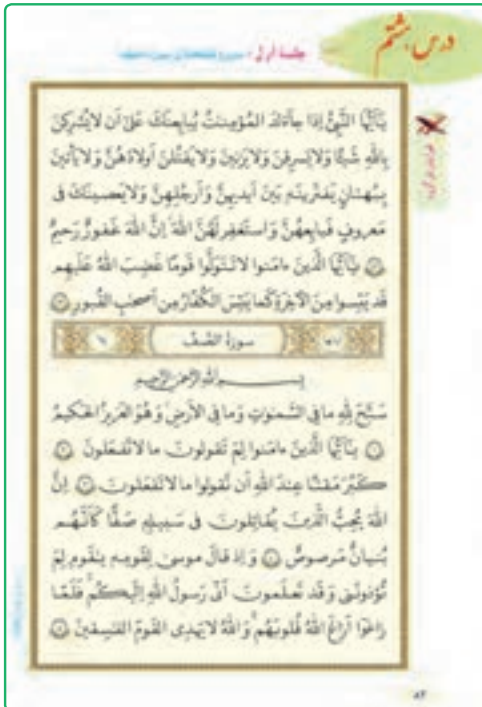 درس هشتم
جلسهٔ اول
یٰأَیُّهَا النَّبِیُّ إِذا جاءَكَ المُؤمِنٰتُ یُبایِعنَكَ عَلیٰ أَن لا یُشرِكنَ
بِاللهِ شَیئًا وَ لا یَسرِقنَ وَ لا یَزنینَ وَ لا یَقتُلنَ أَولادَهُنَّ وَ لا یَأتینَ
بِبُهتانٍ یَفتَرینَهو بَینَ أَیدیهِنَّ وَ أَرجُلِهِنَّ وَ لا یَعصینَكَ فی
مَعروفٍ فَبایِعهُنَّ وَ استَغفِر لَهُنَّ اللهَ إِنَّ اللهَ غَفورٌ رَحیمٌ
۱۲ یٰأَیُّهَا الَّذینَ ءامَنوا لا تَتَوَلَّوا قَومًا غَضِبَ اللهُ عَلَیهِم
قَد یَئِسوا مِنَ الآخِرَةِ كَما یَئِسَ الكُفّارُ مِن أَصحٰبِ القُبورِ ۱۳
سورة الصّف
بسم الله الرحمن الرحیم
سَبَّحَ لِلّهِ ما فِی السَّمٰوٰتِ وَ ما فِی الأَرضِ وَ هُوَ العَزیزُ الحَكیمُ
۱ یٰأَیُّهَا الَّذینَ ءامَنوا لِمَ تَقولونَ ما لا تَفعَلونَ ۲
كَبُرَ مَقتًا عِندَ اللهِ أَن تَقولوا ما لا تَفعَلونَ ۳ إِنَّ
اللهَ یُحِبُّ الَّذینَ یُقاتِلونَ فی سَبیلِهی صَفًّا كَأَنَّهُم
بُنیانٌ مَرصوصٌ ۴ وَ إِذ قالَ موسیٰ لِقَومِهی یٰقَومِ لِمَ
تُؤذونَنی وَ قَد تَعلَمونَ أَنّی رَسولُ اللهِ إِلَیكُم فَلَمّا
زاغوا أَزاغَ اللهُ قُلوبَهُم وَ اللهُ لا یَهدِی القَومَ الفٰسِقینَ ۵
۸۲